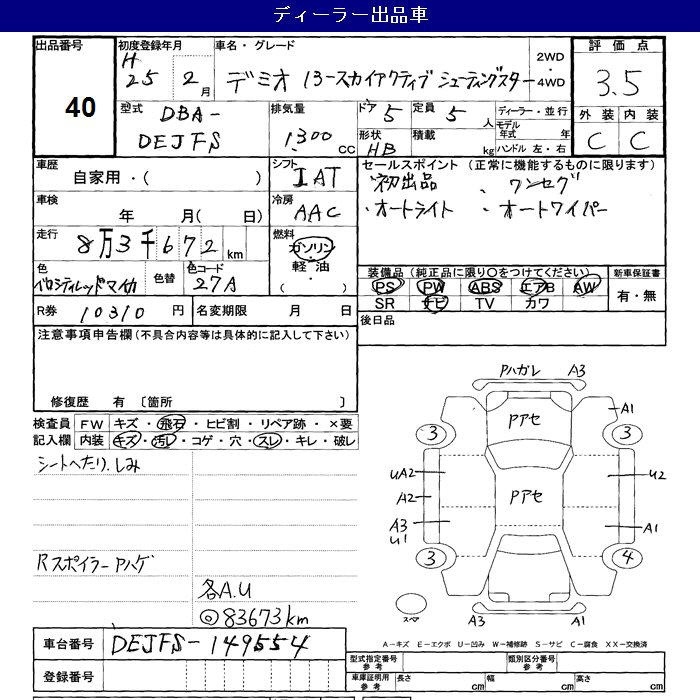 ディーラー出品車
出品番号 初度登録年月 車名・グレード 2WD・4WD 評価点
40
H25年 2月 デミオ 13-スカイアクティブ シューティングスター 3.5
型式 DBA-DEJFS 排気量 1300 CC ドア 5 定員 5 人 ディーラー・並行 外装 内装
形状 HB 積載 kg モデル年式 年 ハンドル 左・右 C C
車歴 シフト セールスポイント (正常に機能するものに限ります)
自家用・( ) IAT ・初出品 ・ワンセグ
車検 冷房 ・オートライト ・オートワイパー
年 月( 日) AAC
走行 燃料
8万3千672km ガソリン・軽油・( )
色 色替 色コード 装備品 (純正品に限り○をつけてください) 新車保証書
ベロシティレッドマイカ 27A PS PW ABS エアB AW 有・無
SR ナビ TV カワ
R券 10310 円 名変期限 月 日 後日品
注意事項申告欄 (不具合内容等は具体的に記入して下さい)
修復歴 有 〔箇所 〕
検査員 FW キズ・飛石・ヒビ割・リペア跡・×要
記入欄 内装 キズ・汚レ・コゲ・穴・スレ・キレ・破レ
シートへたり、しみ
Rスポイラー Pハゲ
各A.U
◎83673km
Pハガレ A3
Pアセ A1
3 3
UA2 Pアセ U2
A2
A3 A1
U1
3 4
スペア A3 A1
車台番号 DEJFS-149554
A-キズ E-エクボ U-凹み W-補修跡 S-サビ C-腐食 XX-交換済
型式指定番号 参考 類別区分番号 参考
登録番号 車庫証明用 参考 長さ cm 幅 cm 高さ cm